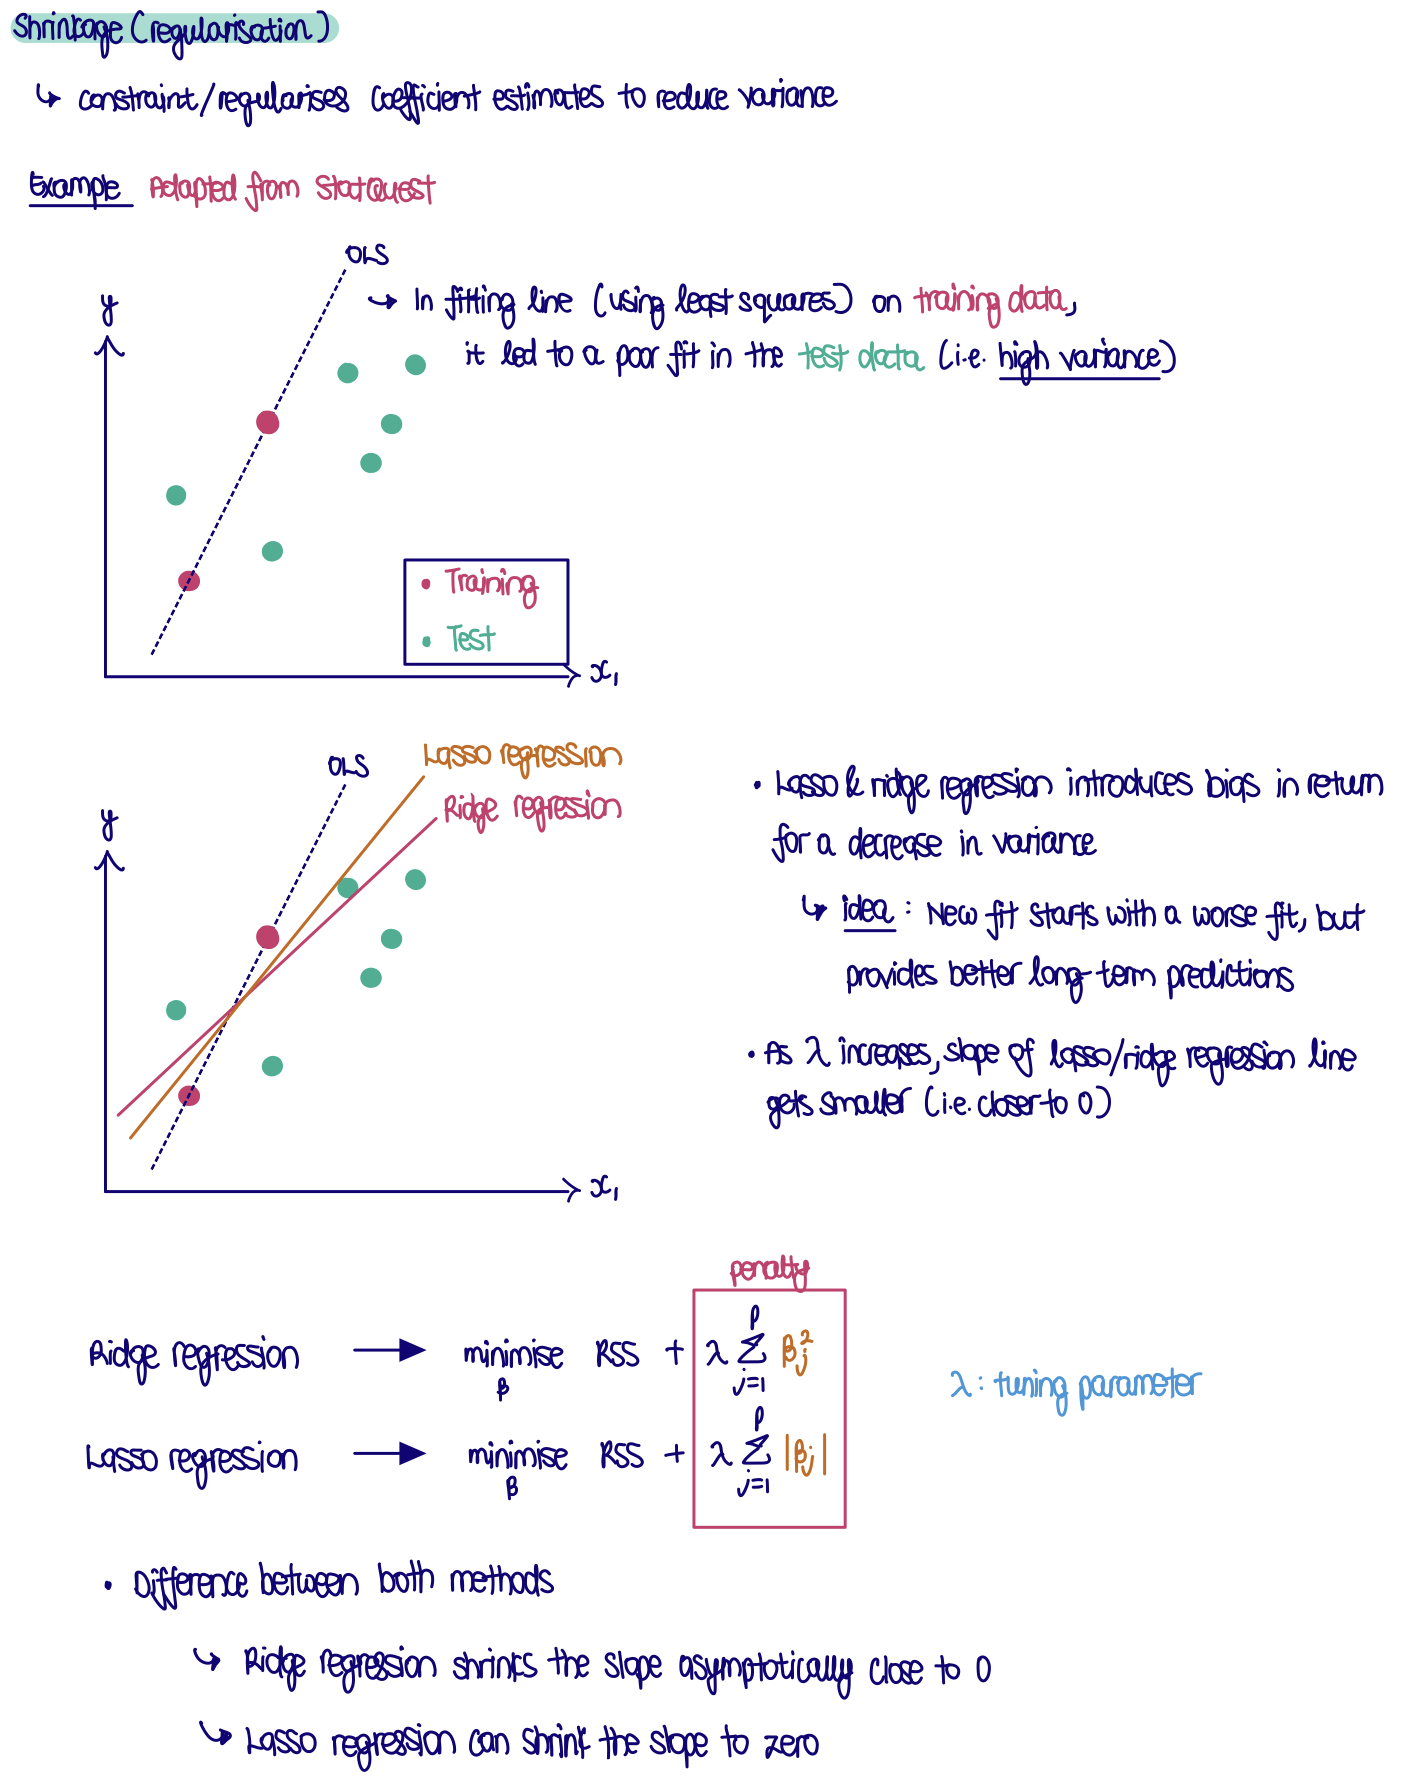 Shrinkage (regularisation)
↳ constraint/regularises coefficient estimates to reduce variance
Example Adapted from StatQuest
OLS
y
↪ In fitting line (using least squares) on training data,
it led to a poor fit in the test data (i.e. high variance)
• Training
• Test
x₁
OLS
Lasso regression
Ridge regression
y
x₁
• Lasso & ridge regression introduces bias in return
for a decrease in variance
↳ idea : New fit starts with a worse fit, but
provides better long-term predictions
• As λ increases, slope of lasso/ridge regression line
gets smaller (i.e. closer to 0)
penalty
Ridge regression → minimise_β RSS + λ Σ_{j=1}^{p} β_j²
λ : tuning parameter
Lasso regression → minimise_β RSS + λ Σ_{j=1}^{p} |β_j|
• Difference between both methods
↳ Ridge regression shrinks the slope asymptotically close to 0
↳ Lasso regression can shrink the slope to zero